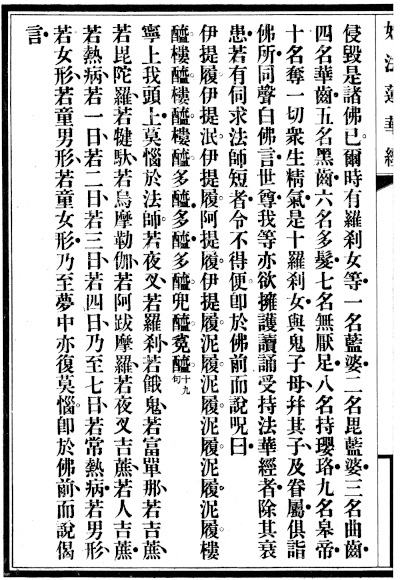 妙法蓮華經
侵毀是諸佛已爾時有羅剎女等一名藍婆二名毘藍婆三名曲齒
四名華齒五名黑齒六名多髮七名無厭足八名持瓔珞九名臯帝
十名奪一切衆生精氣是十羅剎女與鬼子母幷其子及眷屬俱詣
佛所同聲白佛言世尊我等亦欲擁護讀誦受持法華經者除其衰
患若有伺求法師短者令不得便卽於佛前而說呪曰
伊提履伊提泯伊提履阿提履伊提履泥履泥履泥履泥履泥履樓
醯樓醯樓醯樓醯多醯多醯多醯兜醯㝹醯十九句
寧上我頭上莫惱於法師若夜叉若羅剎若餓鬼若富單那若吉蔗
若毘陀羅若犍馱若烏摩勒伽若阿跋摩羅若夜叉吉蔗若人吉蔗
若熱病若一日若二日若三日若四日乃至七日若常熱病若男形
若女形若童男形若童女形乃至夢中亦復莫惱卽於佛前而說偈
言